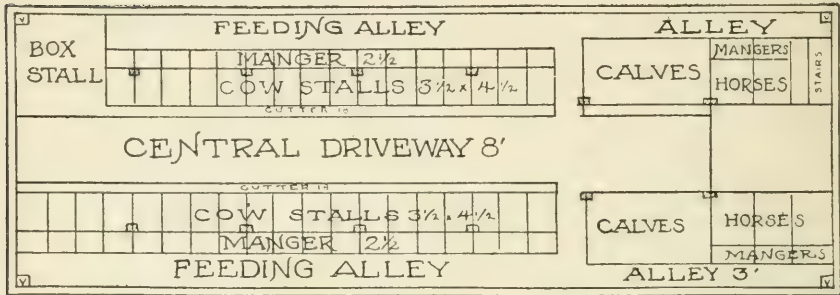 FEEDING ALLEY
ALLEY
BOX
STALL
MANGER 2½
COW STALLS 3½ x 4½
GUTTER 18
CALVES
MANGERS
HORSES
STAIRS
CENTRAL DRIVEWAY 8'
GUTTER 18
COW STALLS 3½ x 4½
MANGER 2½
FEEDING ALLEY
CALVES
HORSES
MANGERS
ALLEY 3'
V
V
V
V